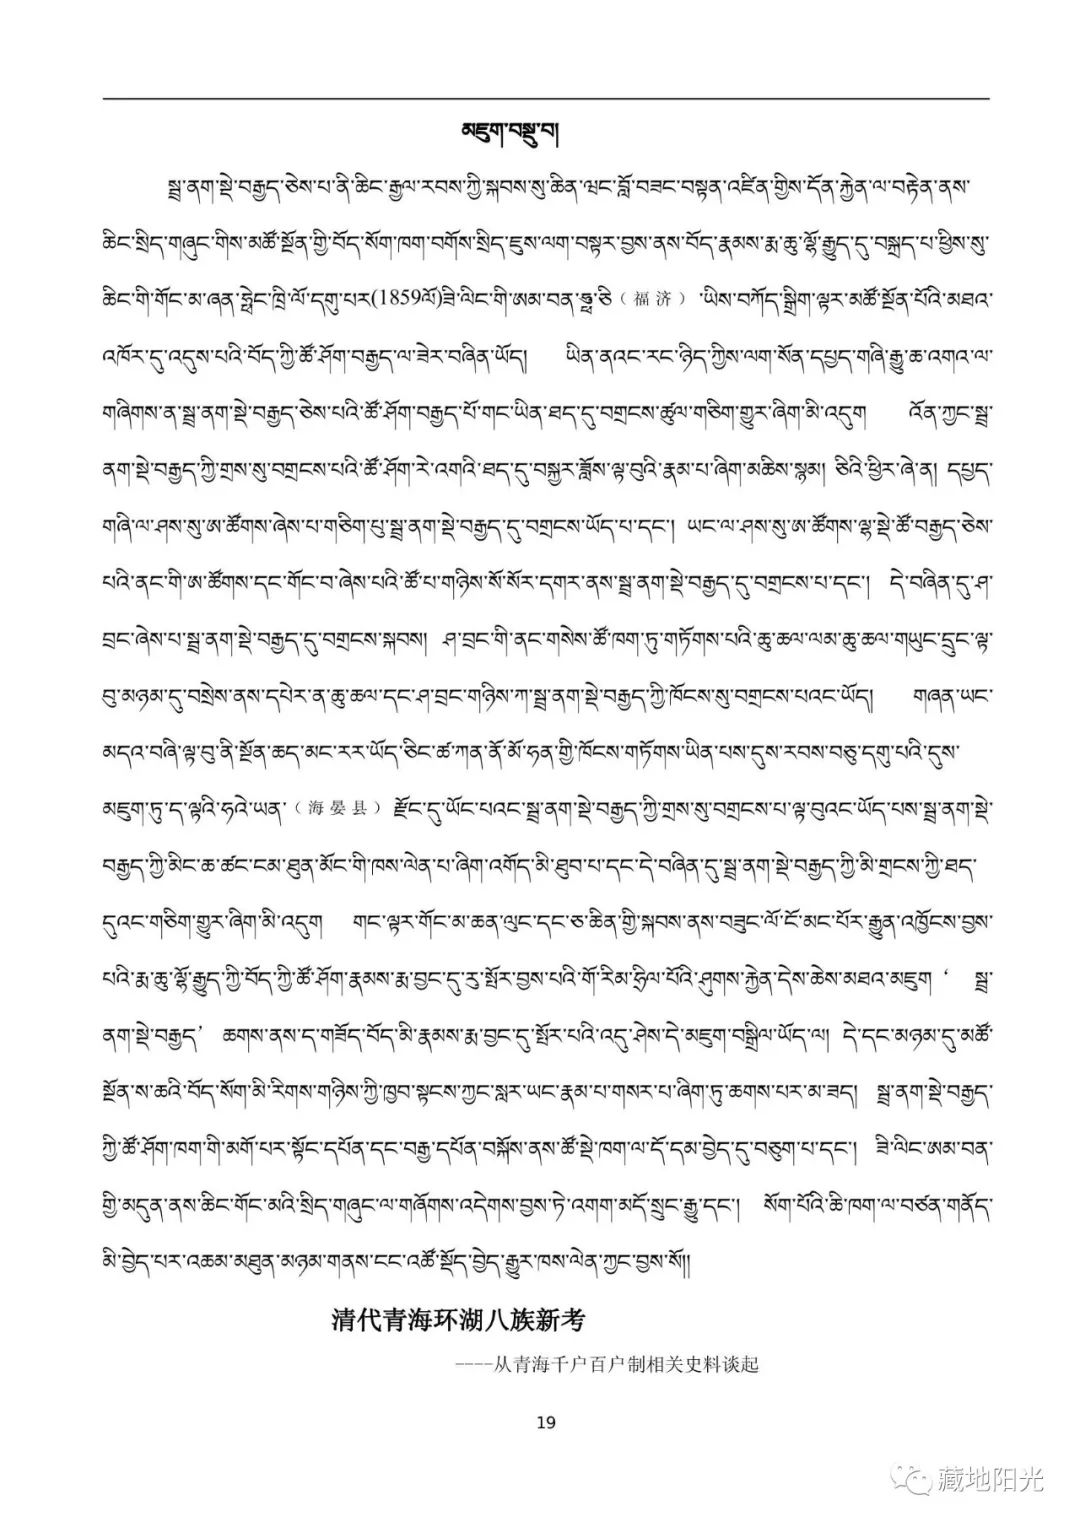 མཇུག་བསྡུ་བ།
སྦྲ་ནག་སྡེ་བརྒྱད་ཅེས་པ་ནི་ཆིང་རྒྱལ་རབས་ཀྱི་སྐབས་སུ་ཆིན་ཝང་བློ་བཟང་བསྟན་འཛིན་གྱིས་དོན་རྐྱེན་ལ་བརྟེན་ནས་
ཆིང་སྲིད་གཞུང་གིས་མཚོ་སྔོན་གྱི་བོད་སོག་ཁག་བགོས་སྲིད་ཇུས་ལག་བསྟར་བྱས་ནས་བོད་རྣམས་རྨ་ཆུ་ལྷོ་རྒྱུད་དུ་བསྐྲད་པ་ཕྱིས་སུ་
ཆིང་གི་གོང་མ་ཞན་ཧྥེང་ཁྲི་ལོ་དགུ་པར(1859ལོ)ཟི་ལིང་གི་ཨམ་བན་ཧྥུ་ཅི（福济）་ཡིས་བཀོད་སྒྲིག་ལྟར་མཚོ་སྔོན་པོའི་མཐའ་
འཁོར་དུ་འདུས་པའི་བོད་ཀྱི་ཚོ་ཤོག་བརྒྱད་ལ་ཟེར་བཞིན་ཡོད། ཡིན་ནའང་རང་ཉིད་ཀྱིས་ལག་སོན་དཔྱད་གཞི་རྒྱུ་ཆ་འགའ་ལ་
གཞིགས་ན་སྦྲ་ནག་སྡེ་བརྒྱད་ཅེས་པའི་ཚོ་ཤོག་བརྒྱད་པོ་གང་ཡིན་ཐད་དུ་བགྲངས་ཚུལ་གཅིག་གྱུར་ཞིག་མི་འདུག འོན་ཀྱང་སྦྲ་
ནག་སྡེ་བརྒྱད་ཀྱི་གྲས་སུ་བགྲངས་པའི་ཚོ་ཤོག་རེ་འགའི་ཐད་དུ་བསྐྱར་ཟློས་ལྟ་བུའི་རྣམ་པ་ཞིག་མཆིས་སྙམ། ཅིའི་ཕྱིར་ཞེ་ན། དཔྱད་
གཞི་ལ་ཤས་སུ་ཨ་ཚོགས་ཞེས་པ་གཅིག་པུ་སྦྲ་ནག་སྡེ་བརྒྱད་དུ་བགྲངས་ཡོད་པ་དང་། ཡང་ལ་ཤས་སུ་ཨ་ཚོགས་ལྷ་སྡེ་ཚོ་བརྒྱད་ཅེས་
པའི་ནང་གི་ཨ་ཚོགས་དང་གོང་བ་ཞེས་པའི་ཚོ་པ་གཉིས་སོ་སོར་དགར་ནས་སྦྲ་ནག་སྡེ་བརྒྱད་དུ་བགྲངས་པ་དང་། དེ་བཞིན་དུ་ཤ་
བྲང་ཞེས་པ་སྦྲ་ནག་སྡེ་བརྒྱད་དུ་བགྲངས་སྐབས། ཤ་བྲང་གི་ནང་གསེས་ཚོ་ཁག་ཏུ་གཏོགས་པའི་ཆུ་ཆལ་ལམ་ཆུ་ཆལ་གཡུང་དྲུང་ལྟ་
བུ་མཉམ་དུ་བསྲེས་ནས་དཔེར་ན་ཆུ་ཆལ་དང་ཤ་བྲང་གཉིས་ཀ་སྦྲ་ནག་སྡེ་བརྒྱད་ཀྱི་ཁོངས་སུ་བགྲངས་པའང་ཡོད། གཞན་ཡང་
མདའ་བཞི་ལྟ་བུ་ནི་སྔོན་ཆད་མང་རར་ཡོད་ཅིང་ཚ་ཀན་ནོ་མོ་ཧན་གྱི་ཁོངས་གཏོགས་ཡིན་པས་དུས་རབས་བཅུ་དགུ་པའི་དུས་
མཇུག་ཏུ་ད་ལྟའི་ཧའེ་ཡན་（海晏县）རྫོང་དུ་ཡོང་པའང་སྦྲ་ནག་སྡེ་བརྒྱད་ཀྱི་གྲས་སུ་བགྲངས་པ་ལྟ་བུའང་ཡོད་པས་སྦྲ་ནག་སྡེ་
བརྒྱད་ཀྱི་མིང་ཆ་ཚང་ངམ་ཐུན་མོང་གི་ཁས་ལེན་པ་ཞིག་འགོད་མི་ཐུབ་པ་དང་དེ་བཞིན་དུ་སྦྲ་ནག་སྡེ་བརྒྱད་ཀྱི་མི་གྲངས་ཀྱི་ཐད་
དུའང་གཅིག་གྱུར་ཞིག་མི་འདུག གང་ལྟར་གོང་མ་ཆན་ལུང་དང་ཅ་ཆིན་གྱི་སྐབས་ནས་བཟུང་ལོ་ངོ་མང་པོར་རྒྱུན་འཁྱོངས་བྱས་
པའི་རྨ་ཆུ་ལྷོ་རྒྱུད་ཀྱི་བོད་ཀྱི་ཚོ་ཤོག་རྣམས་རྨ་བྱང་དུ་རུ་སྤོར་བྱས་པའི་གོ་རིམ་ཧྲིལ་པོའི་ཤུགས་རྐྱེན་དེས་ཆེས་མཐའ་མཇུག ‘ སྦྲ་
ནག་སྡེ་བརྒྱད’ ཆགས་ནས་ད་གཟོད་བོད་མི་རྣམས་རྨ་བྱང་དུ་སྤོར་པའི་འདུ་ཤེས་དེ་མཇུག་བསྒྲིལ་ཡོད་ལ། དེ་དང་མཉམ་དུ་མཚོ་
སྔོན་ས་ཆའི་བོད་སོག་མི་རིགས་གཉིས་ཀྱི་ཁྱབ་སྟངས་ཀྱང་སླར་ཡང་རྣམ་པ་གསར་པ་ཞིག་ཏུ་ཆགས་པར་མ་ཟད། སྦྲ་ནག་སྡེ་བརྒྱད་
ཀྱི་ཚོ་ཤོག་ཁག་གི་མགོ་པར་སྟོང་དཔོན་དང་བརྒྱ་དཔོན་བསྐོས་ནས་ཚོ་སྡེ་ཁག་ལ་དོ་དམ་བྱེད་དུ་བཅུག་པ་དང་། ཟི་ལིང་ཨམ་བན་
གྱི་མདུན་ནས་ཆིང་གོང་མའི་སྲིད་གཞུང་ལ་གཞོགས་འདེགས་བྱས་ཏེ་འགག་མདོ་སྲུང་རྒྱུ་དང་། སོག་པོའི་ཆི་ཁག་ལ་བཙན་གནོད་
མི་བྱེད་པར་འཆམ་མཐུན་མཉམ་གནས་ངང་འཚོ་སྡོད་བྱེད་རྒྱུར་ཁས་ལེན་ཀྱང་བྱས་སོ།།
清代青海环湖八族新考
----从青海千户百户制相关史料谈起
19
藏地阳光